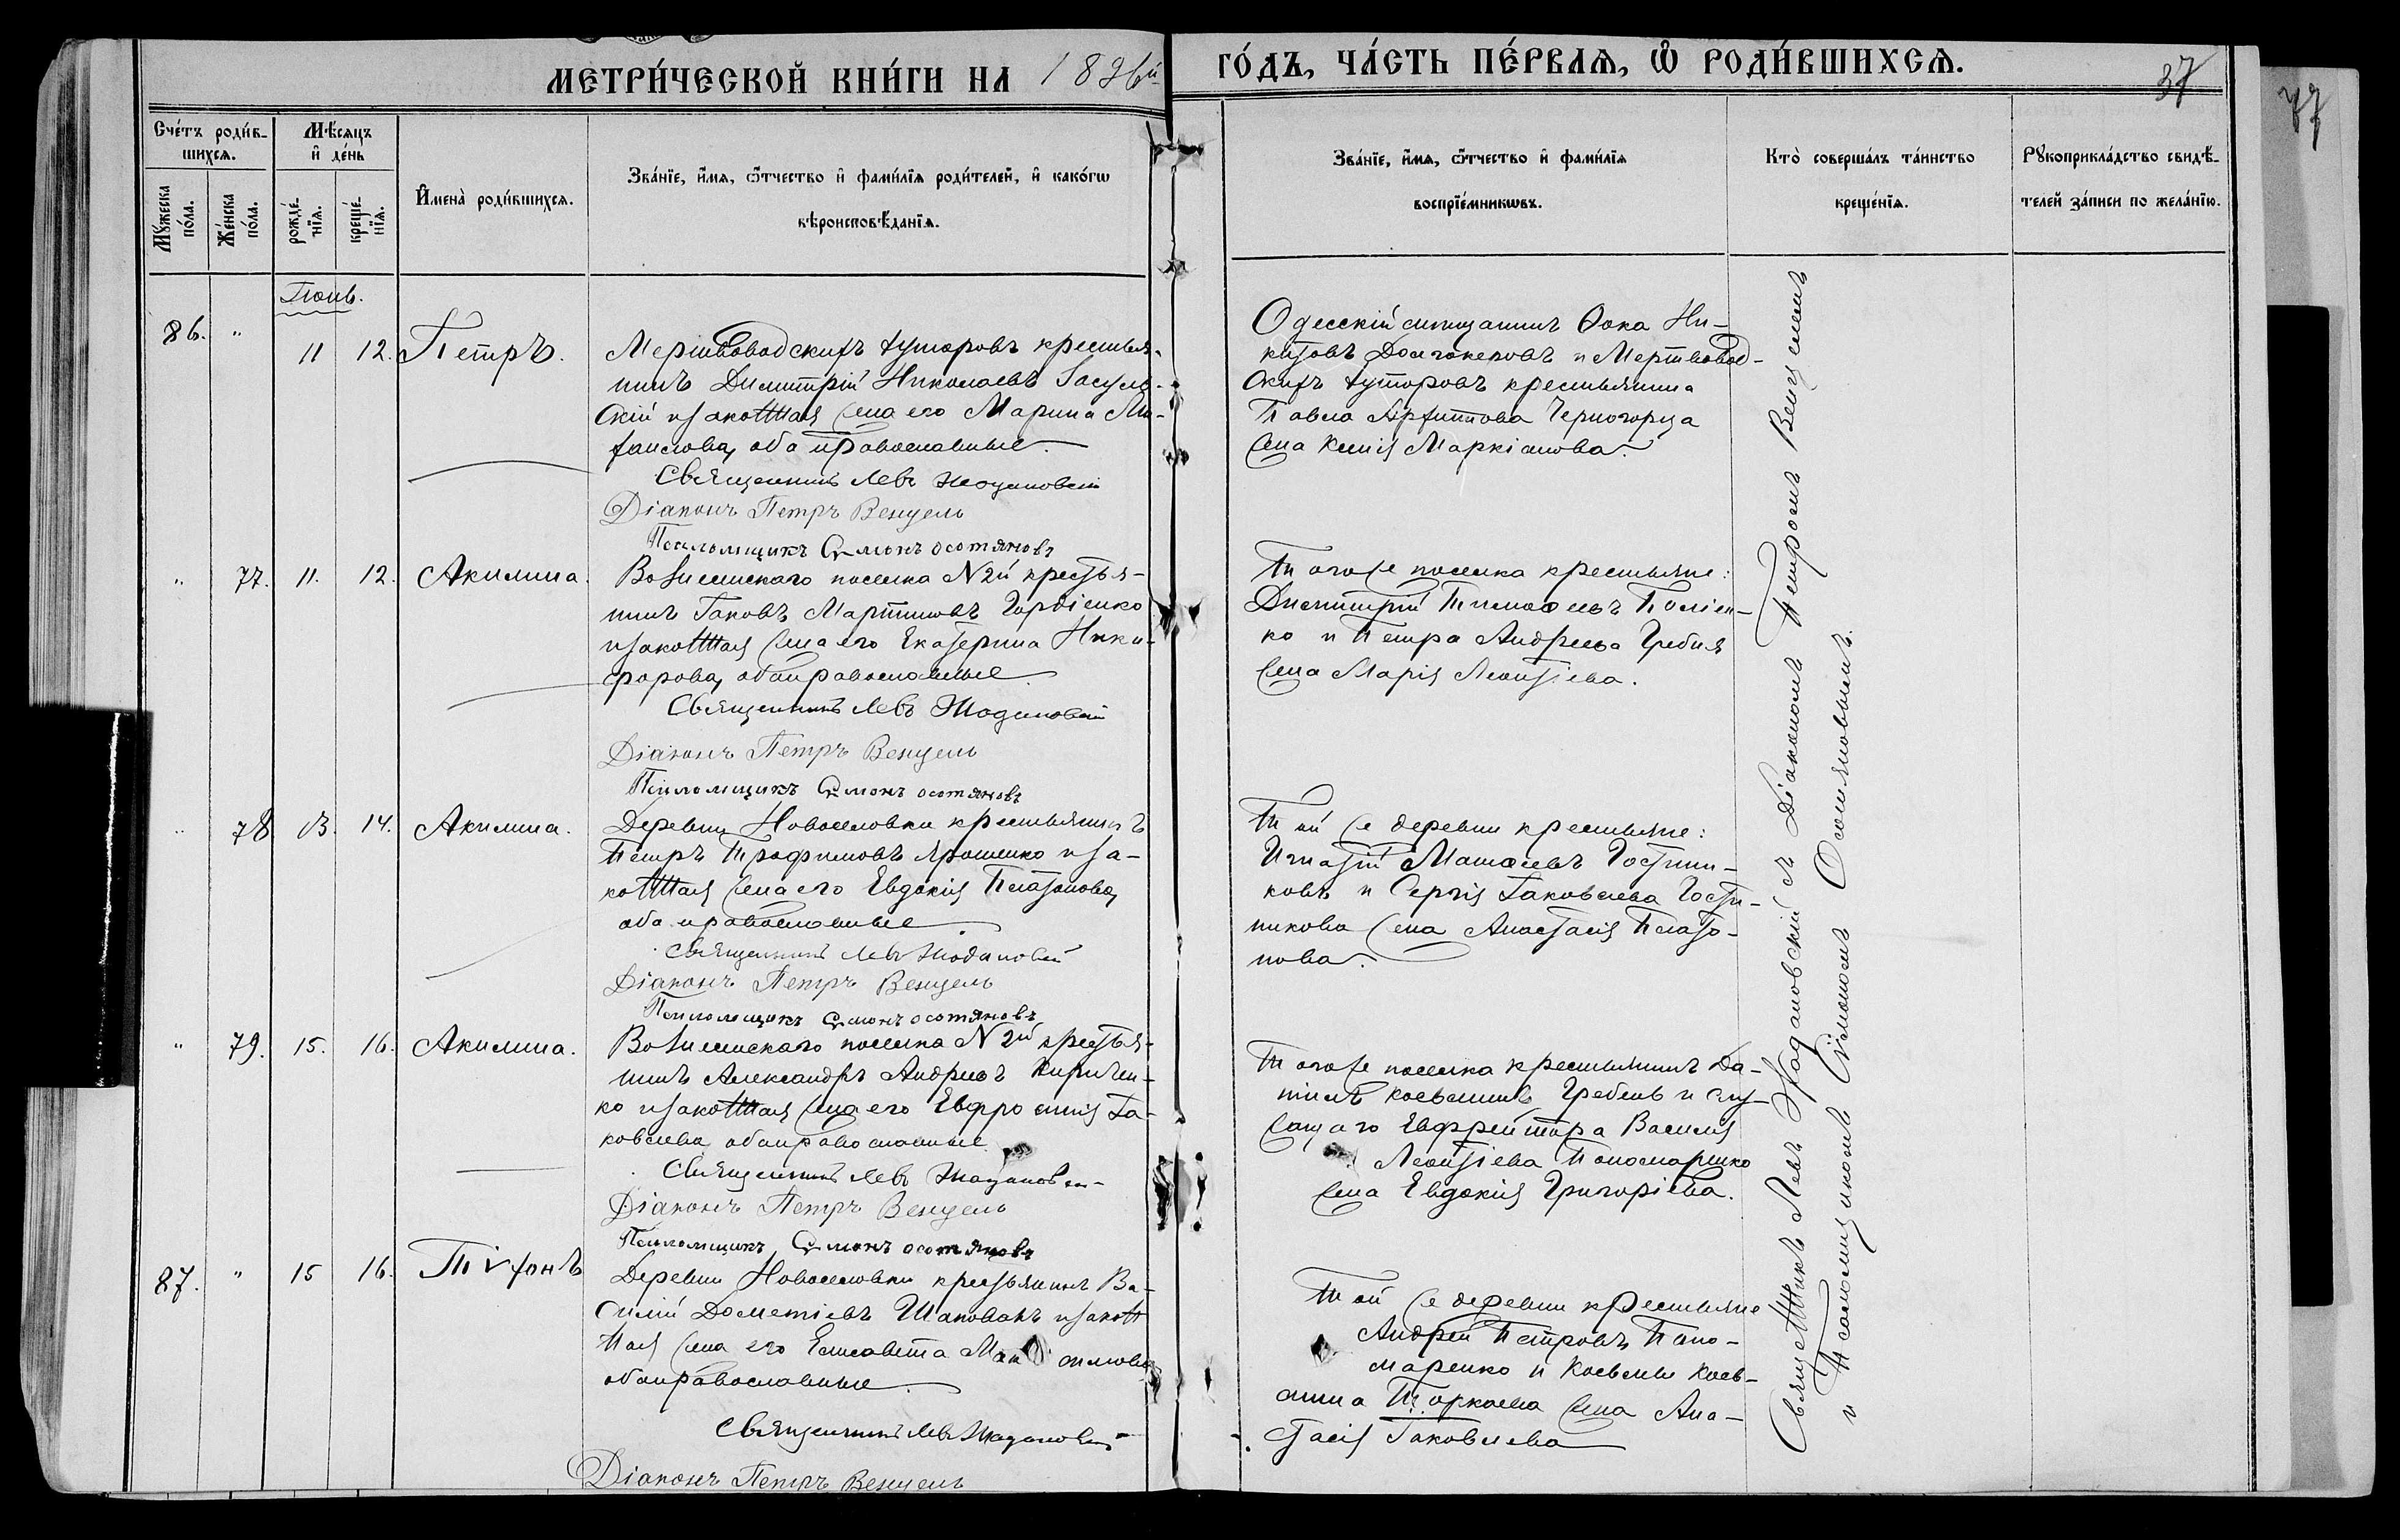 МЕТРИ́ЧЕСКОЙ КНИ́ГИ НА 1896й
ГО́ДЪ, ЧА́СТЬ ПЕ́РВАЯ, Ѡ РОДИ́ВШИХСЯ.
37
77
Сче́тъ роди́в-
шихся.
Мѣ́сяцъ
и де́нь
Му́жеска
по́ла.
Же́нска
по́ла.
рожде́-
нїя.
креще́-
нїя.
И҆мена̀ роди́вшихся.
Зва́нїе, и҆́мя, ѻ҆́тчество и҆ фами́лїя роди́телей, и҆ како́гѡ
вѣроисповѣ́данїя.
Зва́нїе, и҆́мя, ѻ҆́тчество и҆ фами́лїя
воспрїе́мникѡвъ.
Кто̀ соверша́лъ та́инство
креще́нїя.
Рꙋкоприкла́дство свидѣ́-
телей за́писи по жела́нїю.
Іюнь.
86. " 11 12. Петръ.
Мертвоводскихъ хуторовъ крестья-
нинъ Димитрій Николаевъ
скій и законная жена его Марина Ми-
хаилова, оба православные.
Священникъ Левъ Жодановскій
Діаконъ Петръ Венцель
Псаломщикъ Сѵмонъ Осотяновъ
Одесскій мѣщанинъ Ѳока Ни-
китовъ и Мертвовод-
скихъ хуторовъ крестьянина
Павла Архиппова Черногорца
жена Ксенія Маркіанова.
" 77. 11. 12. Акилина.
поселка N 2й крестья-
нинъ Іаковъ Мартиновъ Гордіенко
и законная жена его Екатерина Ники-
форова, оба православные
Священникъ Левъ Жодановскій
Діаконъ Петръ Венцель
Псаломщикъ Сѵмонъ Осотяновъ
Того же поселка крестьяне:
Димитрій Тимоѳеевъ
ко и Петра Андреева Гребня
жена Марія Леонтіева.
" 78 13. 14. Акилина.
Деревни Новоселовки крестьянинъ
Петръ Трофимовъ Ярошенко и за-
конная жена его Евдокія Платонова,
оба православные
Священникъ Левъ Жодановскій
Діаконъ Петръ Венцель
Псаломщикъ Сѵмонъ Осотяновъ
Той же деревни крестьяне:
Игнатій Матѳеевъ Гостин-
ковъ и Сергія Іаковлева Гости-
никова жена Анастасія Плато-
нова.
" 79. 15. 16. Акилина.
поселка N 2й крестья-
нинъ Александръ Андреевъ Киричен-
ко и законная жена его Евфросинія Іа-
ковлева оба православные
Священникъ Левъ Жодановскій
Діаконъ Петръ Венцель
Псаломщикъ Сѵмонъ Осотяновъ
Того же поселка крестьянинъ Да-
ніилъ Гребень и слу-
жащаго Ефрейтора Василія
Леонтіева Пономаренко
жена Евдокія Григоріева.
87. " 15 16. Тѵхонъ
Деревни Новоселовки крестьянинъ Ва-
силій Дометіевъ Шаповалъ и закон
ная жена его Елисавета
оба православные
Священникъ Левъ Жодановскій
Діаконъ Петръ Венцель
Той же деревни крестьяне
Андрей Петровъ Поно-
маренко и
жена Ана-
стасія Іаковлева
Священникъ Левъ Жодановскій съ Діакономъ Петромъ Венцелемъ
и Псаломщикомъ Сѵмономъ Осотяновымъ.